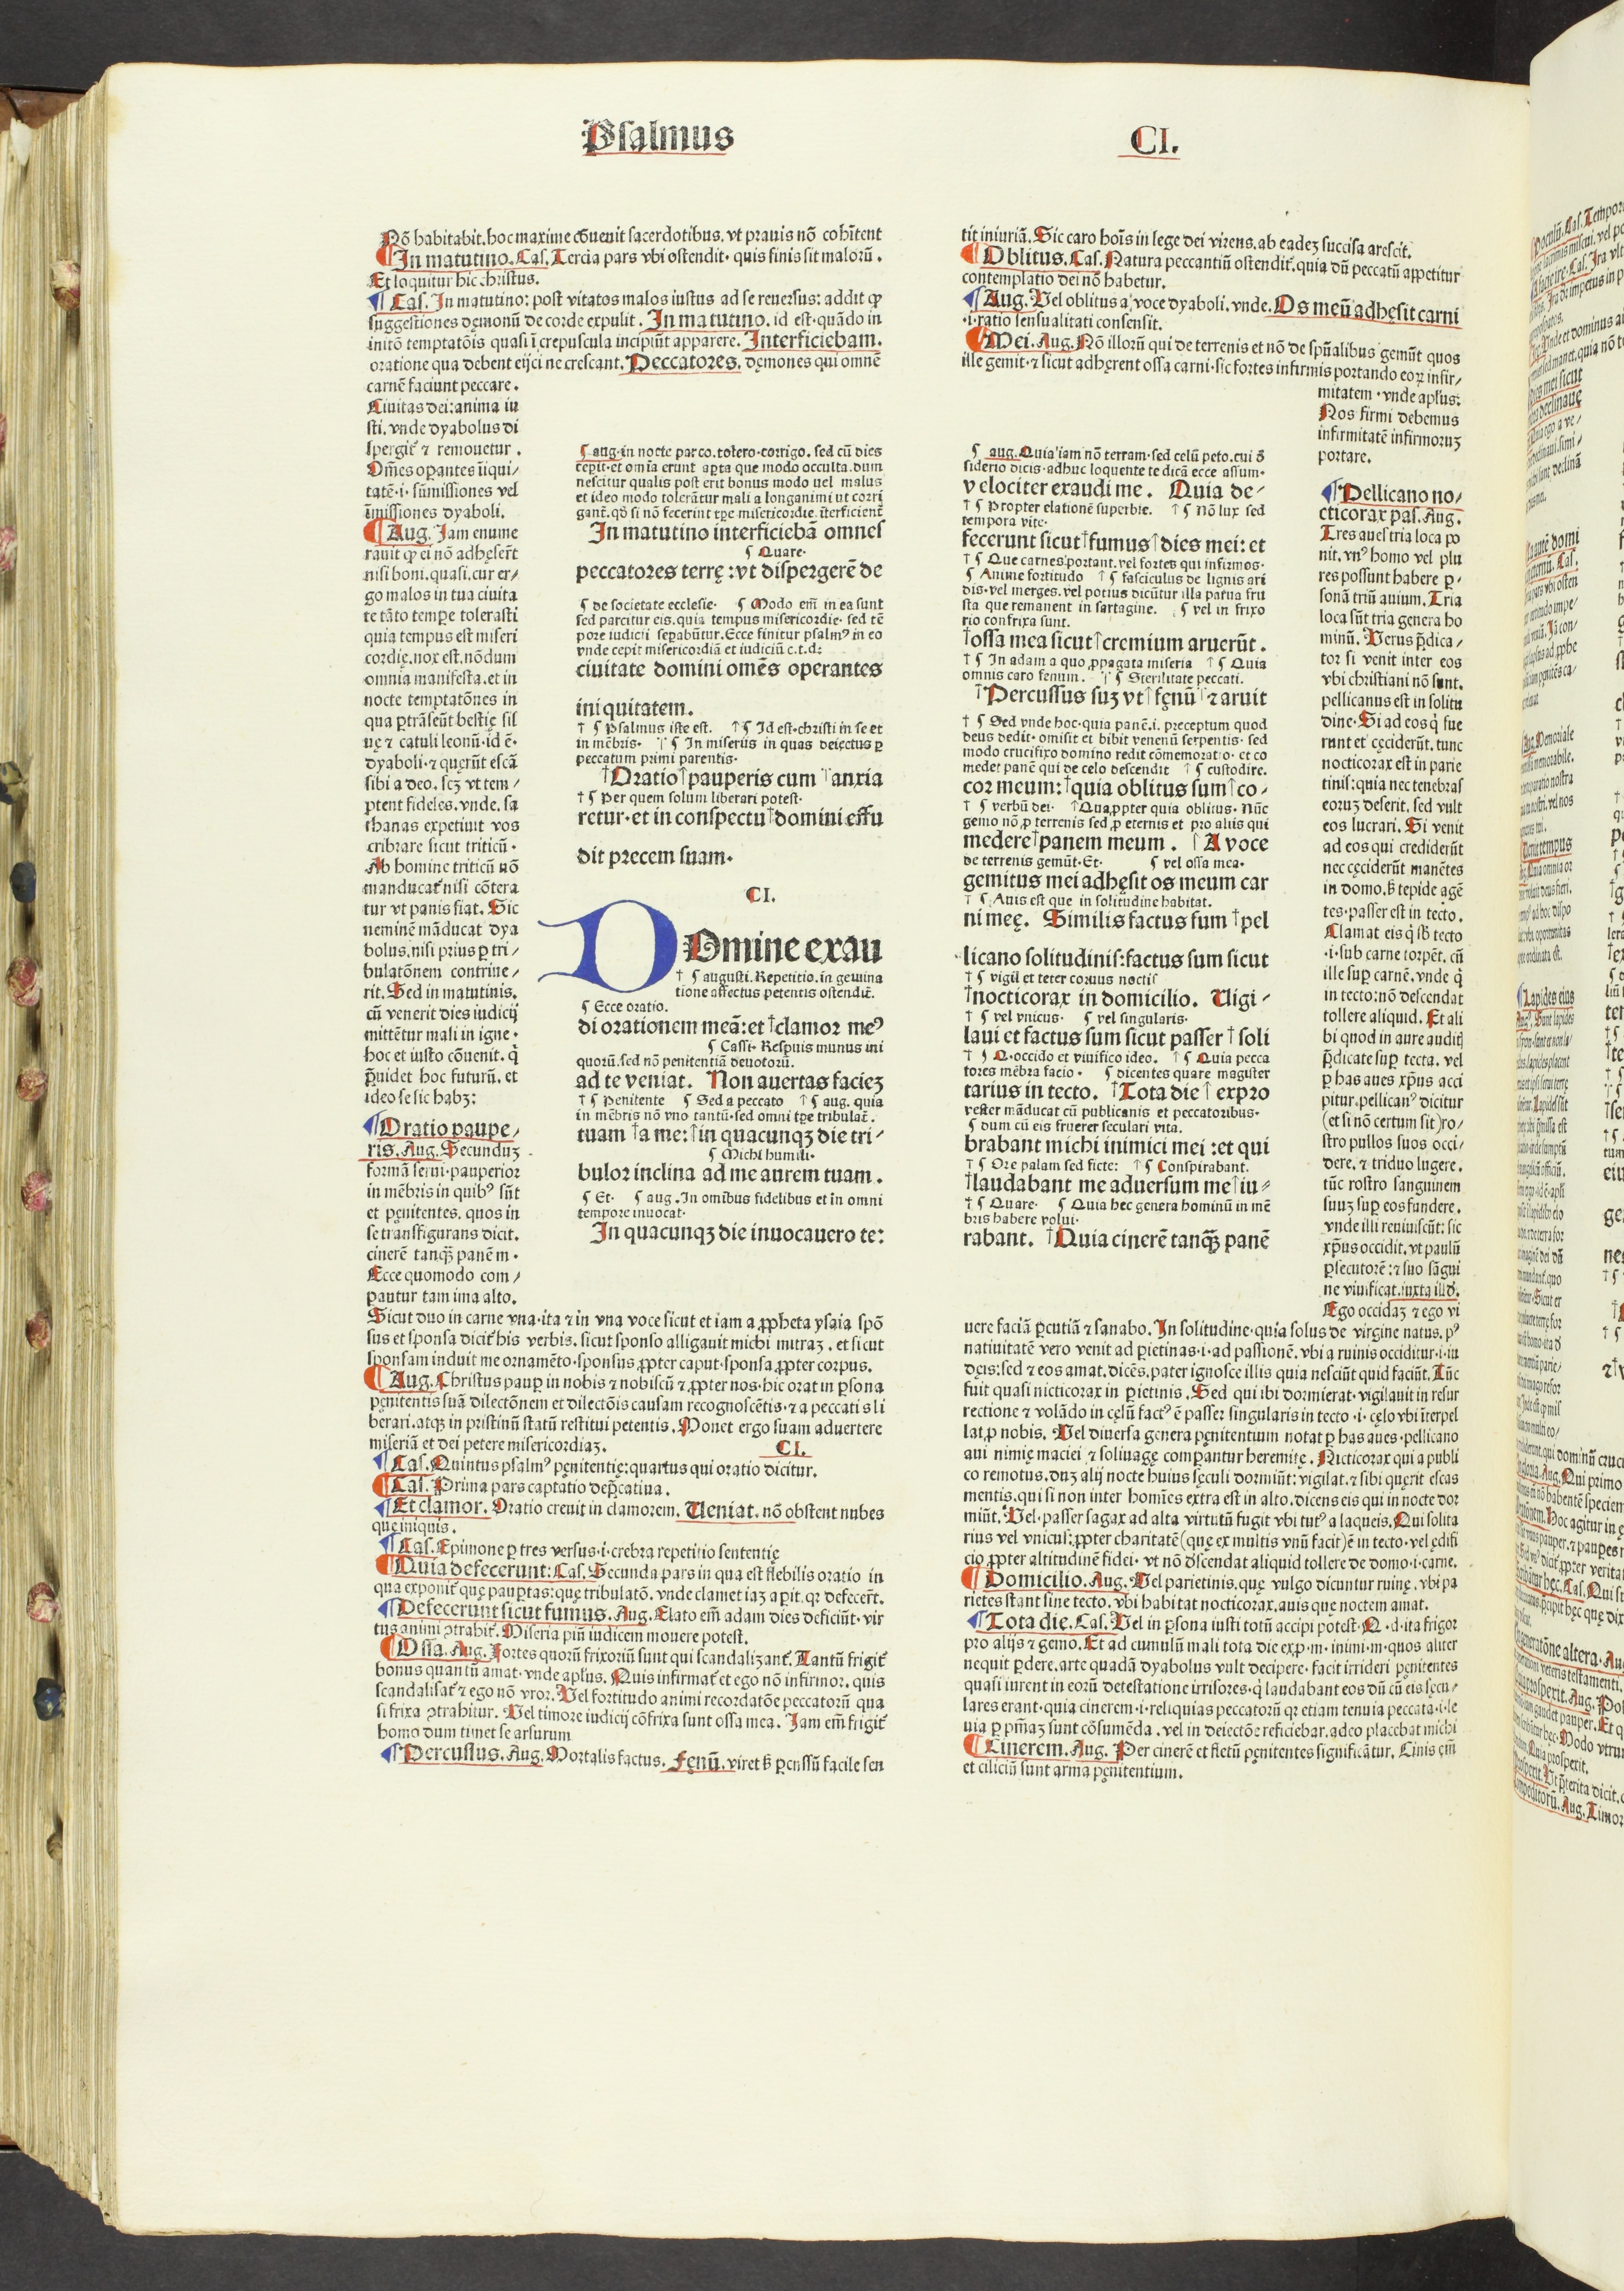 Psalmus
CI.
Nō habitabit. hoc maxime cōuenit sacerdotibus. vt prauis nō cohītent
In matutino. Cas. Tercia pars vbi ostendit. quis finis sit malorū.
Et loquitur hic christus.
Cas. In matutino: post vitatos malos iustus ad se reuersus: addit ꝙ
suggestiones dęmonū de corde expulit. In matutino. id est. quādo in
initō temptatōis quasi ī crepuscula incipiūt apparere. Interficiebam.
oratione qua debent eijci ne crescant. Peccatores. dęmones qui omnē
carnē faciunt peccare.
Ciuitas dei: anima iu
sti. vnde dyabolus di
spergit̄ ⁊ remouetur.
Om̄es oꝑantes iniqui/
tatē. i. sūmissiones vel
īmissiones dyaboli.
Aug. Jam enume
rauit ꝙ ei nō adhęserūt
nisi boni. quasi. cur er/
go malos in tua ciuita
te tāto tempe tolerasti
quia tempus est miseri
cordię. nox est. nōdum
omnia manifesta. et in
nocte temptatōnes in
qua ꝑtrāseūt bestię sil
uę ⁊ catuli leonū. id ē.
dyaboli. ⁊ quęrūt escā
sibi a deo. scꝫ vt tem/
ptent fideles. vnde. sa
thanas expetiuit vos
cribrare sicut triticū.
Ab homine triticū nō
manducat̄ nisi cōtera
tur vt panis fiat. Sic
neminē māducat dya
bolus. nisi prius ꝑ tri/
bulatōnem contriue/
rit. Sed in matutinis.
cū venerit dies iudicij
mittētur mali in igne.
hoc et iusto cōuenit. q̄
ꝓuidet hoc futurū. et
ideo se sic habꝫ:
Oratio paupe/
ris. Aug. Secunduꝫ
formā serui. pauperior
in mēbris in quibꝰ sūt
et pęnitentes. quos in
se transfigurans dicit.
cinerē tanqꝫ panē m.
Ecce quomodo com/
pautur tam ima alto.
Sicut duo in carne vna. ita ⁊ in vna voce sicut et iam a ꝓpheta ysaia spō
sus et sponsa dicit̄ his verbis. sicut sponso alligauit michi mitraꝫ. et sicut
sponsam induit me ornamēto. sponsus ꝓpter caput. sponsa ꝓpter corpus.
Aug. Christus pauꝑ in nobis ⁊ nobiscū ⁊ ꝓpter nos. hic orat in ꝑsona
pęnitentis suā dilectōnem et dilectōis causam recognoscētis. ⁊ a peccatis li
berari. atqꝫ in pristinū statū restitui petentis. Monet ergo suam aduertere
miseriā et dei petere misericordiaꝫ.
CI.
Cas. Quintus psalmꝰ pęnitentię: quartus qui oratio dicitur.
Cas. Prima pars captatio deꝑcatiua.
Et clamor. Oratio creuit in clamorem. Veniat. nō obstent nubes
que iniquis.
Cas. Epimone ꝑ tres versus. i. crebra repetitio sententię
Quia defecerunt: Cas. Secunda pars in qua est flebilis oratio in
qua exponit̄ quę pauꝑtas: quę tribulatō. vnde clamet iaꝫ aꝑit. qꝛ defecerūt.
Defecerunt sicut fumus. Aug. Elato em̄ adam dies deficiūt. vir
tus animi ꝯtrahit̄. Miseria piū iudicem mouere potest.
Ossa. Aug. Fortes quorū frixoriū sunt qui scandalizant̄. Tantū frigit̄
bonus quantū amat. vnde apl̄us. Quis infirmat̄ et ego nō infirmor. quis
scandalisat̄ ⁊ ego nō vror. Vel fortitudo animi recordatōe peccatorū qua
si frixa ꝯtrahitur. Vel timore iudicij cōfrixa sunt ossa mea. Jam em̄ frigit̄
homo dum timet se arsurum
Percussus. Aug. Mortalis factus. Fęnū. viret sꝫ ꝑcussū facile sen
aug. in nocte parco. tolero. corrigo. sed cū dies
ceꝑit. et omīa erunt aꝑta que modo occulta. dum
nescitur qualis post erit bonus modo uel malus
et ideo modo tolerātur mali a longanimi ut corri
gant̄. qđ si nō fecerint tꝑe misericordie. īterficient̄
In matutino interficiebā omnes
Quare.
peccatores terrę: vt dispergerē de
de societate ecclesie. Modo em̄ in ea sunt
sed parcitur eis. quia tempus misericordie. sed tē
pore iudicii seꝑabūtur. Ecce finitur psalmꝰ in eo
vnde cepit misericordiā et iudiciū c. t. d:
ciuitate domini omēs operantes
iniquitatem.
Psalmus iste est. Id est. christi in se et
in mēbris. In miseriis in quas deiectus ꝑ
peccatum primi parentis.
Oratio pauperis cum anxia
Per quem solum liberari potest.
retur. et in conspectu domini effu
dit precem suam.
CI.
Domine exau
augusti. Repetitio. in gemina
tione affectus petentis ostendit̄.
Ecce oratio.
di orationem meā: et clamor meꝰ
Cassi. Respuis munus ini
quorū. sed nō penitentiā deuotorū.
ad te veniat. Non auertas facieꝫ
Penitente Sed a peccato aug. quia
in mēbris nō vno tantū. sed omni tꝑe tribulat̄.
tuam a me: in quacunqꝫ die tri/
Michi humili.
bulor inclina ad me aurem tuam.
Et. aug. In omībus fidelibus et in omni
tempore inuocat.
In quacunqꝫ die inuocauero te:
tit iniuriā. Sic caro hoīs in lege dei virens. ab eadeꝫ succisa arescit.
Oblitus. Cas. Natura peccantiū ostendit̄. quia dū peccatū appetitur
contemplatio dei nō habetur.
Aug. Vel oblitus a voce dyaboli. vnde. Os meū adhęsit carni
.i. ratio sensualitati consensit.
Mei. Aug. Nō illorū qui de terrenis et nō de spūalibus gemūt quos
ille gemit. ⁊ sicut adhęrent ossa carni. sic fortes infirmis portando eoꝝ infir/
mitatem. vnde apl̄us:
Nos firmi debemus
infirmitatē infirmoruꝫ
portare.
aug. Quia iam nō terram. sed celū peto. cui đ
siderio dicis. adhuc loquente te dicā ecce assum.
velociter exaudi me. Quia de/
Propter elationē superbie. Nō lux sed
tempora vite.
fecerunt sicut fumus dies mei: et
Que carnes portant. vel fortes qui infirmos.
Anime fortitudo fasciculus de lignis ari
dis. vel merges. vel potius dicūtur illa parua fru
sta que remanent in sartagine. vel in frixo
rio confrixa sunt.
ossa mea sicut cremium aruerūt.
In adam a quo ꝓpagata miseria Quia
omnis caro fenum. Sterilitate peccati.
Percussus suꝫ vt fęnū ⁊ aruit
Sed vnde hoc. quia panē. i. preceptum quod
deus dedit. omisit et bibit venenū serpentis. sed
modo crucifixo domino redit cōmemoratio. et co
medet panē qui de celo descendit custodire.
cor meum: quia oblitus sum co/
verbū dei. Quapropter quia oblitus. Nūc
gemo nō ꝓ terrenis sed ꝓ eternis et pro aliis qui
medere panem meum. A voce
de terrenis gemūt. Et. vel ossa mea.
gemitus mei adhęsit os meum car
Auis est que in solitudine habitat.
ni meę. Similis factus sum pel
licano solitudinis: factus sum sicut
vigil et teter coruus noctis
nocticorax in domicilio. Vigi/
vel vnicus. vel singularis.
laui et factus sum sicut passer soli
Q. occido et viuifico ideo. Quia pecca
tores mēbra facio. dicentes quare magister
tarius in tecto. Tota die expro
vester māducat cū publicanis et peccatoribus.
dum cū eis fruerer seculari vita.
brabant michi inimici mei: et qui
Ore palam sed ficte: Conspirabant.
laudabant me aduersum me iu/
Quare. Quia hec genera hominū in mē
bris habere volui.
rabant. Quia cinerē tanqꝫ panē
Pellicano no/
cticorax pas. Aug.
Tres aues tria loca po
nit. vnꝰ homo vel plu
res possunt habere ꝑ/
sonā triū auium. Tria
loca sūt tria genera ho
minū. Verus p̄dica/
tor si venit inter eos
vbi christiani nō sunt.
pellicanus est in solitu
dine. Si ad eos q̄ fue
runt et cęciderūt. tunc
nocticorax est in parie
tinis: quia nec tenebras
eoruꝫ deserit. sed vult
eos lucrari. Si venit
ad eos qui crediderūt
nec cęciderūt manētes
in domo. sꝫ tepide agē
tes. passer est in tecto.
Clamat eis q̄ sb tecto
.i. sub carne torpēt. cū
ille suꝑ carnē. vnde q̄
in tecto: nō descendat
tollere aliquid. Et ali
bi quod in aure auditꝭ
p̄dicate suꝑ tecta. vel
ꝑ has aues xp̄us acci
pitur. pellicanꝰ dicitur
(et si nō certum sit) ro/
stro pullos suos occi/
dere. ⁊ triduo lugere.
tūc rostro sanguinem
suuꝫ suꝑ eos fundere.
vnde illi reuiuiscūt: sic
xp̄us occidit. vt paulū
ꝑsecutorē: ⁊ suo sāgui
ne viuificat. iuxta illđ.
Ego occidaꝫ ⁊ ego vi
uere faciā ꝑcutiā ⁊ sanabo. In solitudine. quia solus de virgine natus. pꝰ
natiuitatē vero venit ad ꝑietinas. i. ad passionē. vbi a ruinis occiditur. i. iu
dęis: sed ⁊ eos amat. dicēs. pater ignosce illis quia nesciūt quid faciūt. Tūc
fuit quasi nicticorax in ꝑietinis. Sed qui ibi dormierat. vigilauit in resur
rectione ⁊ volādo in cęlū factꝰ ē passer singularis in tecto .i. cęlo vbi īterpel
lat ꝓ nobis. Vel diuersa genera pęnitentium notat ꝑ has aues. pellicano
aui nimię maciei ⁊ soliuagę comꝑantur heremitę. Nicticorax qui a publi
co remotus. duꝫ alij nocte huius sęculi dormiūt: vigilat. ⁊ sibi quęrit escas
mentis. qui si non inter homīes extra est in alto. dicens eis qui in nocte dor
miūt. Vel. passer sagax ad alta virtutū fugit vbi tutꝰ a laqueis. Qui solita
rius vel vnicus: ꝓpter charitatē (que ex multis vnū facit) ē in tecto. vel ędifi
cio ꝓpter altitudinē fidei. vt nō đscendat aliquid tollere de domo. i. carne.
Domicilio. Aug. Vel parietinis. quę vulgo dicuntur ruinę. vbi pa
rietes stant sine tecto. vbi habitat nocticorax. auis que noctem amat.
Tota die. Cas. Vel in ꝑsona iusti totū accipi potest. Q. d. ita frigor
pro alijs ⁊ gemo. Et ad cumulū mali tota die exꝓ. m. inimi. m. quos aliter
nequit ꝑdere. arte quadā dyabolus vult decipere. facit irrideri pęnitentes
quasi iurent in eorū detestatione irrisores. q̄ laudabant eos dū cū eis sęcu/
lares erant. quia cinerem. i. reliquias peccatorū qꝛ etiam tenuia peccata. i. le
uia ꝑ pn̄iaꝫ sunt cōsumēda. vel in deiectōe reficiebar. adeo placebat michi
Cinerem. Aug. Per cinerē et fletū pęnitentes significātur. Cinis em̄
et ciliciū sunt arma pęnitentium.